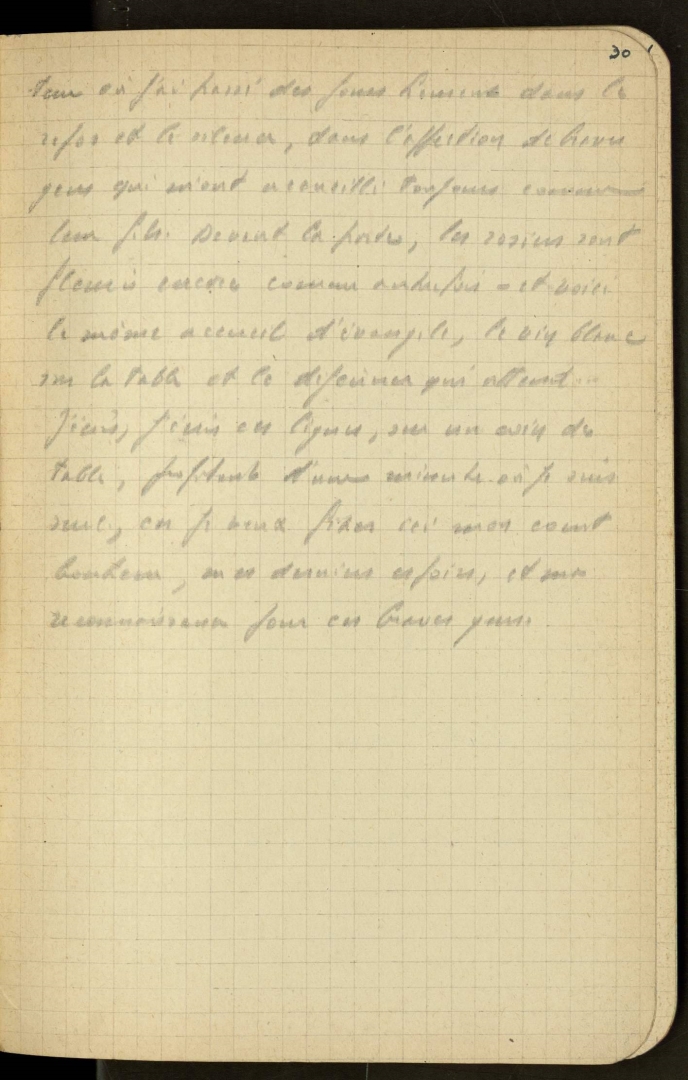 30
où j'ai passé des jours heureux dans le
repos et le silence, dans l'affection de braves
gens qui m'ont accueilli toujours comme
leur fils. Devant la porte, les rosiers sont
fleuris encore comme autrefois et voici
le même accueil d'évangile, le vin blanc
sur la table et le déjeuner qui attend...
J'écris, j'écris ces lignes, sur un coin de
table, profitant d'une minute où je suis
seul, car je veux fixer ici mon court
bonheur, mes derniers espoirs, et ma
reconnaissance pour ces braves gens.